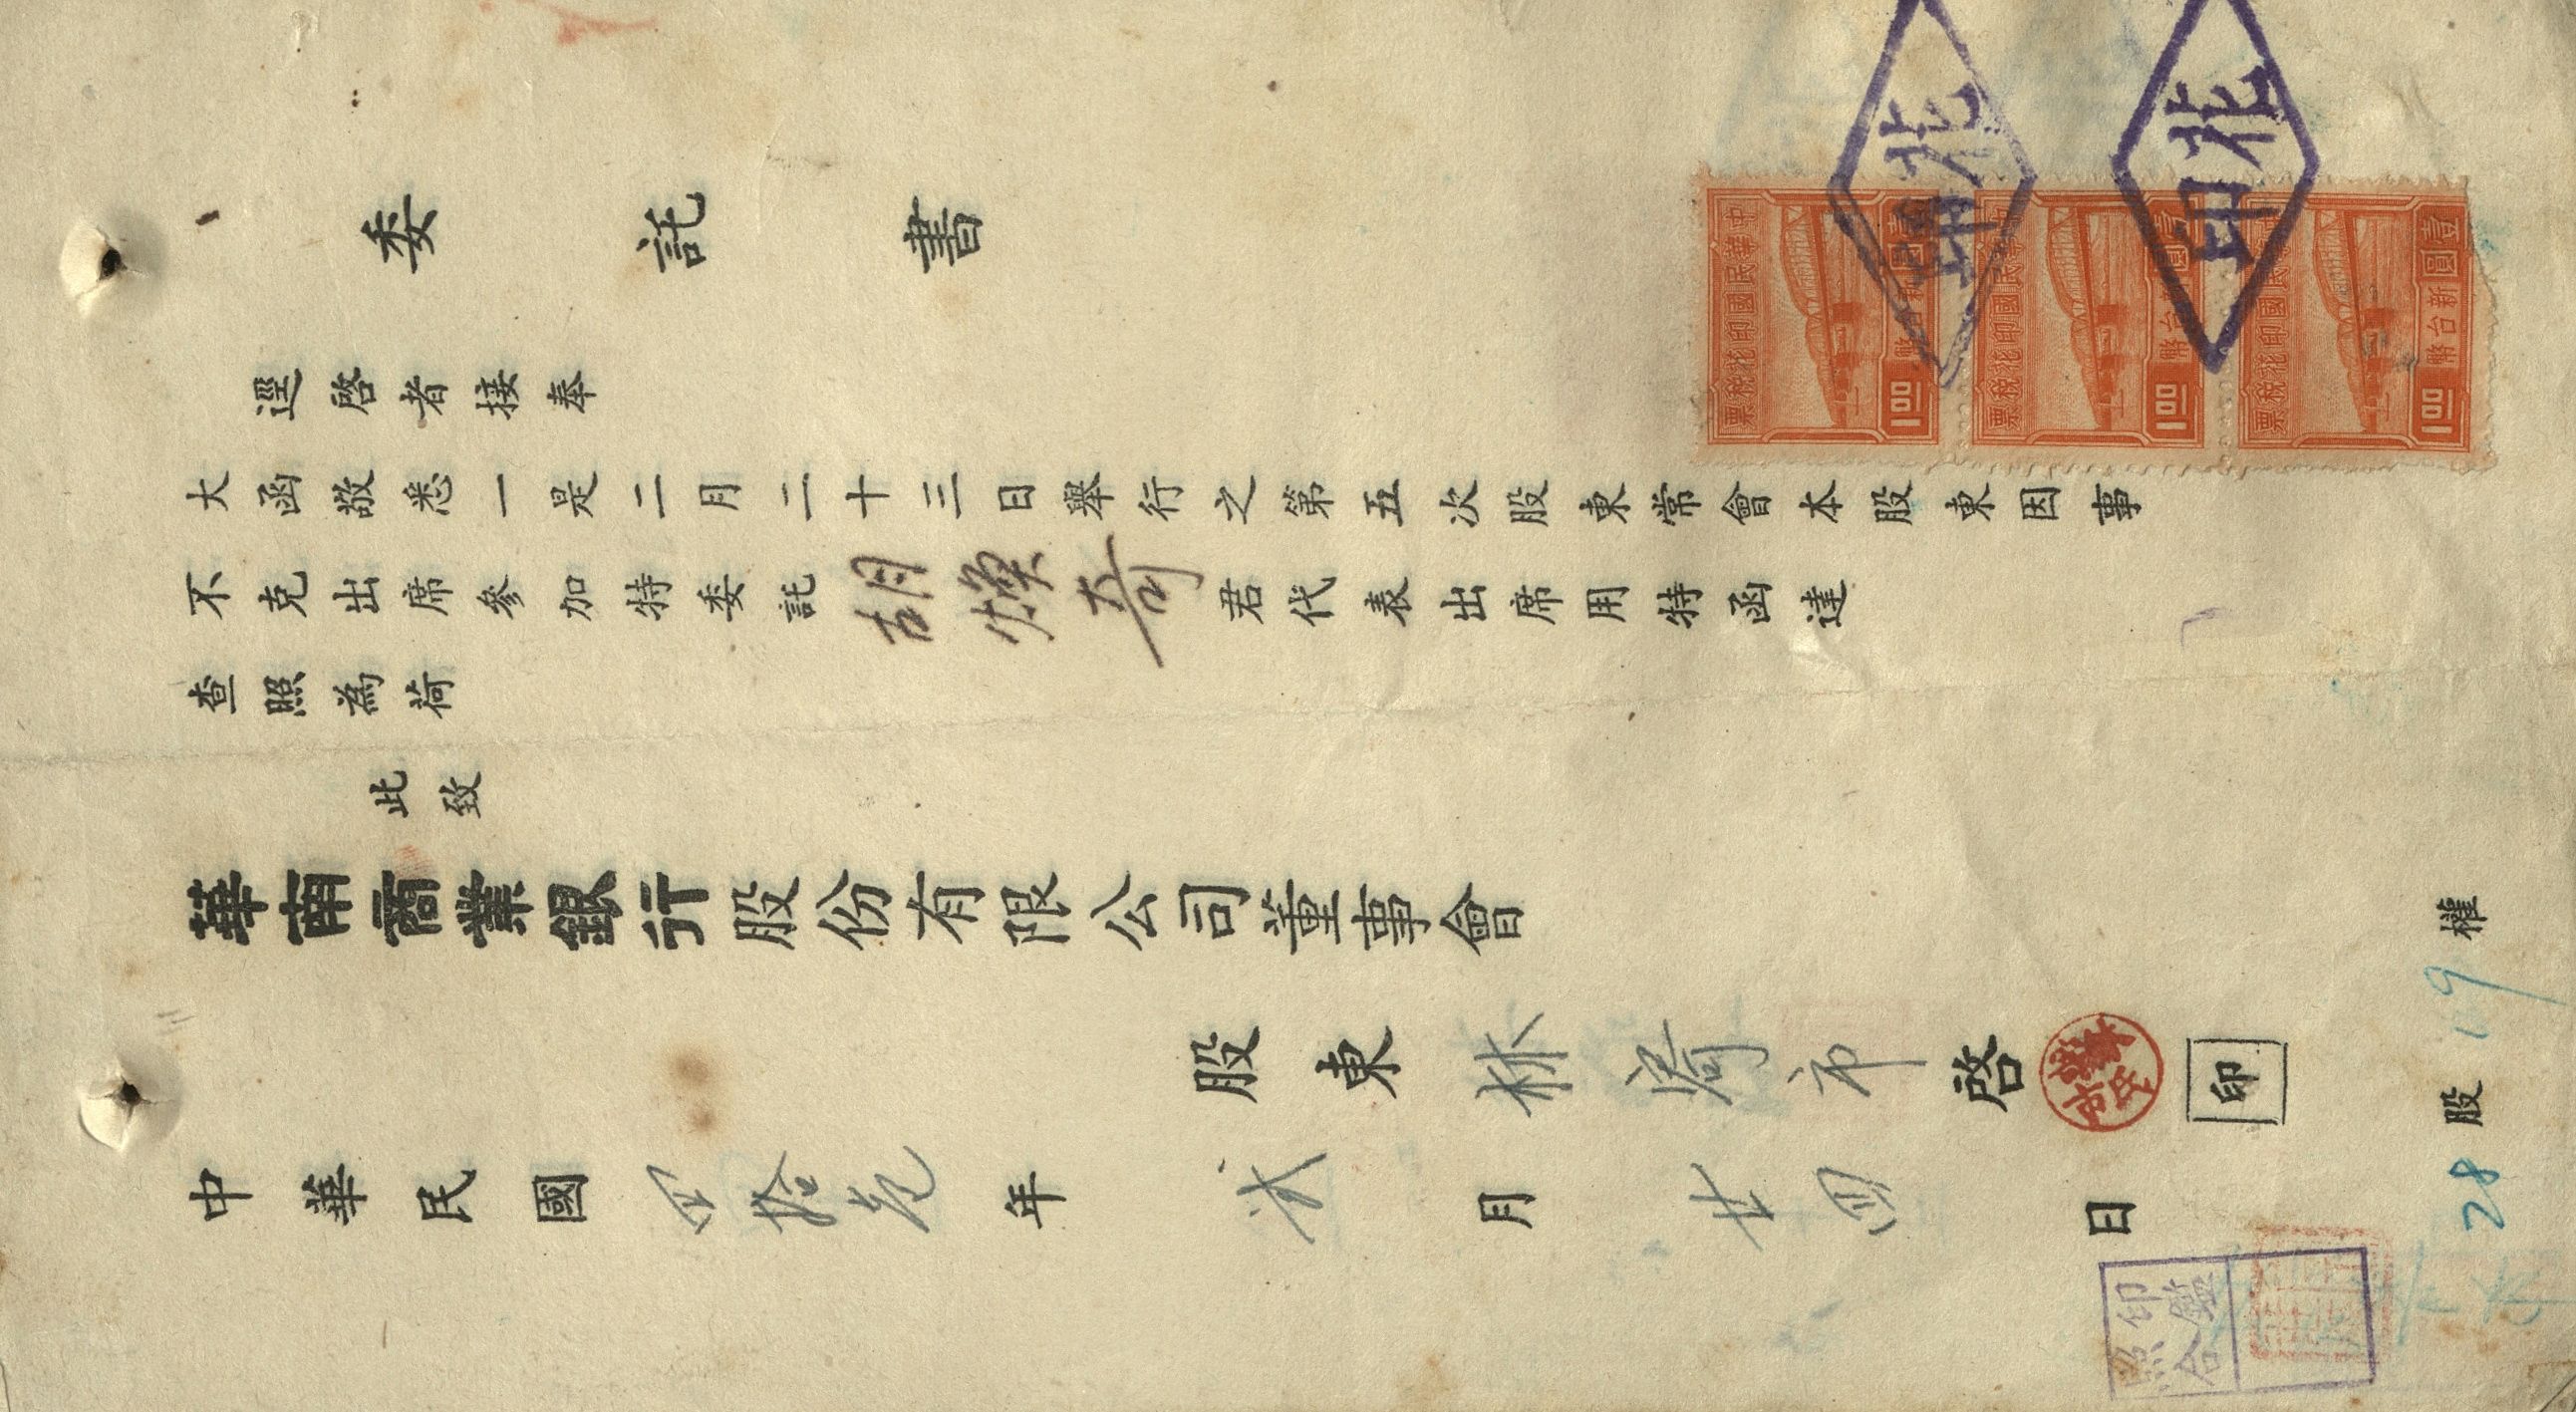 委託書
逕啓者接奉
大函敬悉一是二月二十三日舉行之第五次股東常會本股東因事
不克出席參加特委託胡煥奇君代表出席用特函達
查照為荷
此致
華南商業銀行股份有限公司董事會
股東林 市啓
印
中華民國四拾 年弍月廿四日
28股19權
印鑑
照合
印花
印花
中華民國印花稅票
新台幣
1.00
中華民國印花稅票
新台幣
1.00
中華民國印花稅票
壹圓
新台幣
1.00